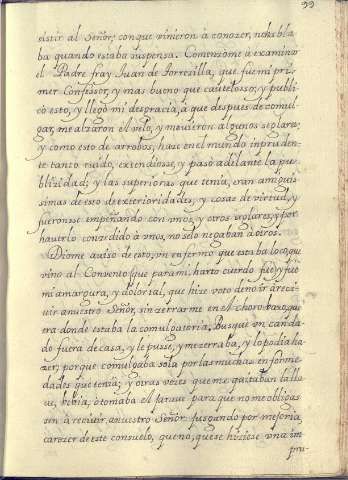 99
elstir al Señor, con que vinieron à conozer, no habla
ba quando estaba suspensa. Comenzome à examinar
el Padre fray Iuan de Torrezilla, que fue mi pri,
mer Confessor, y mas bueno que cauteloso; y publi
cò esto, y llegò mi desgracia, à que despues de comul
gar, me alzaron el velo, y me vieron algunos seglares;
y como esto de arrobos, haze en el mundo inpruden
te tanto ruido, extendiosse, y pasò adelante la pu
blizidad; y las superioras que tenia, eran amiguis
simas de esto de exterioridades, y cosas de virtud, y
fueronse empeñando con vnos, y otros seglares, y por
hauerlo conzedido à vnos, no se lo negaban à otros.
Diome auiso de esto, vn enfermo que estaba loco, que
vino al Convento (que para mi, harto cuerdo fue) y fue
mi amargura, y dolor tal, que hize voto de no ir à rezi
uir a nuestro Señor, sin zerrarme en el choro baxo, que
era donde estaba la comulgatoria. Busquè vn canda
do fuera de casa, y le puse, y me zerraba, y lo podia ha
zer; porque comulgaba sola por las muchas enferme
dades que tenia; y otras vezes que me quitaban la lla
ue, bebia, ò tomaba el para que no me obligas
sen à reziuir a nuestro Señor, juzgando por mejoria,
carezer de este consuelo, que no, que se hiziese vna im
pru-